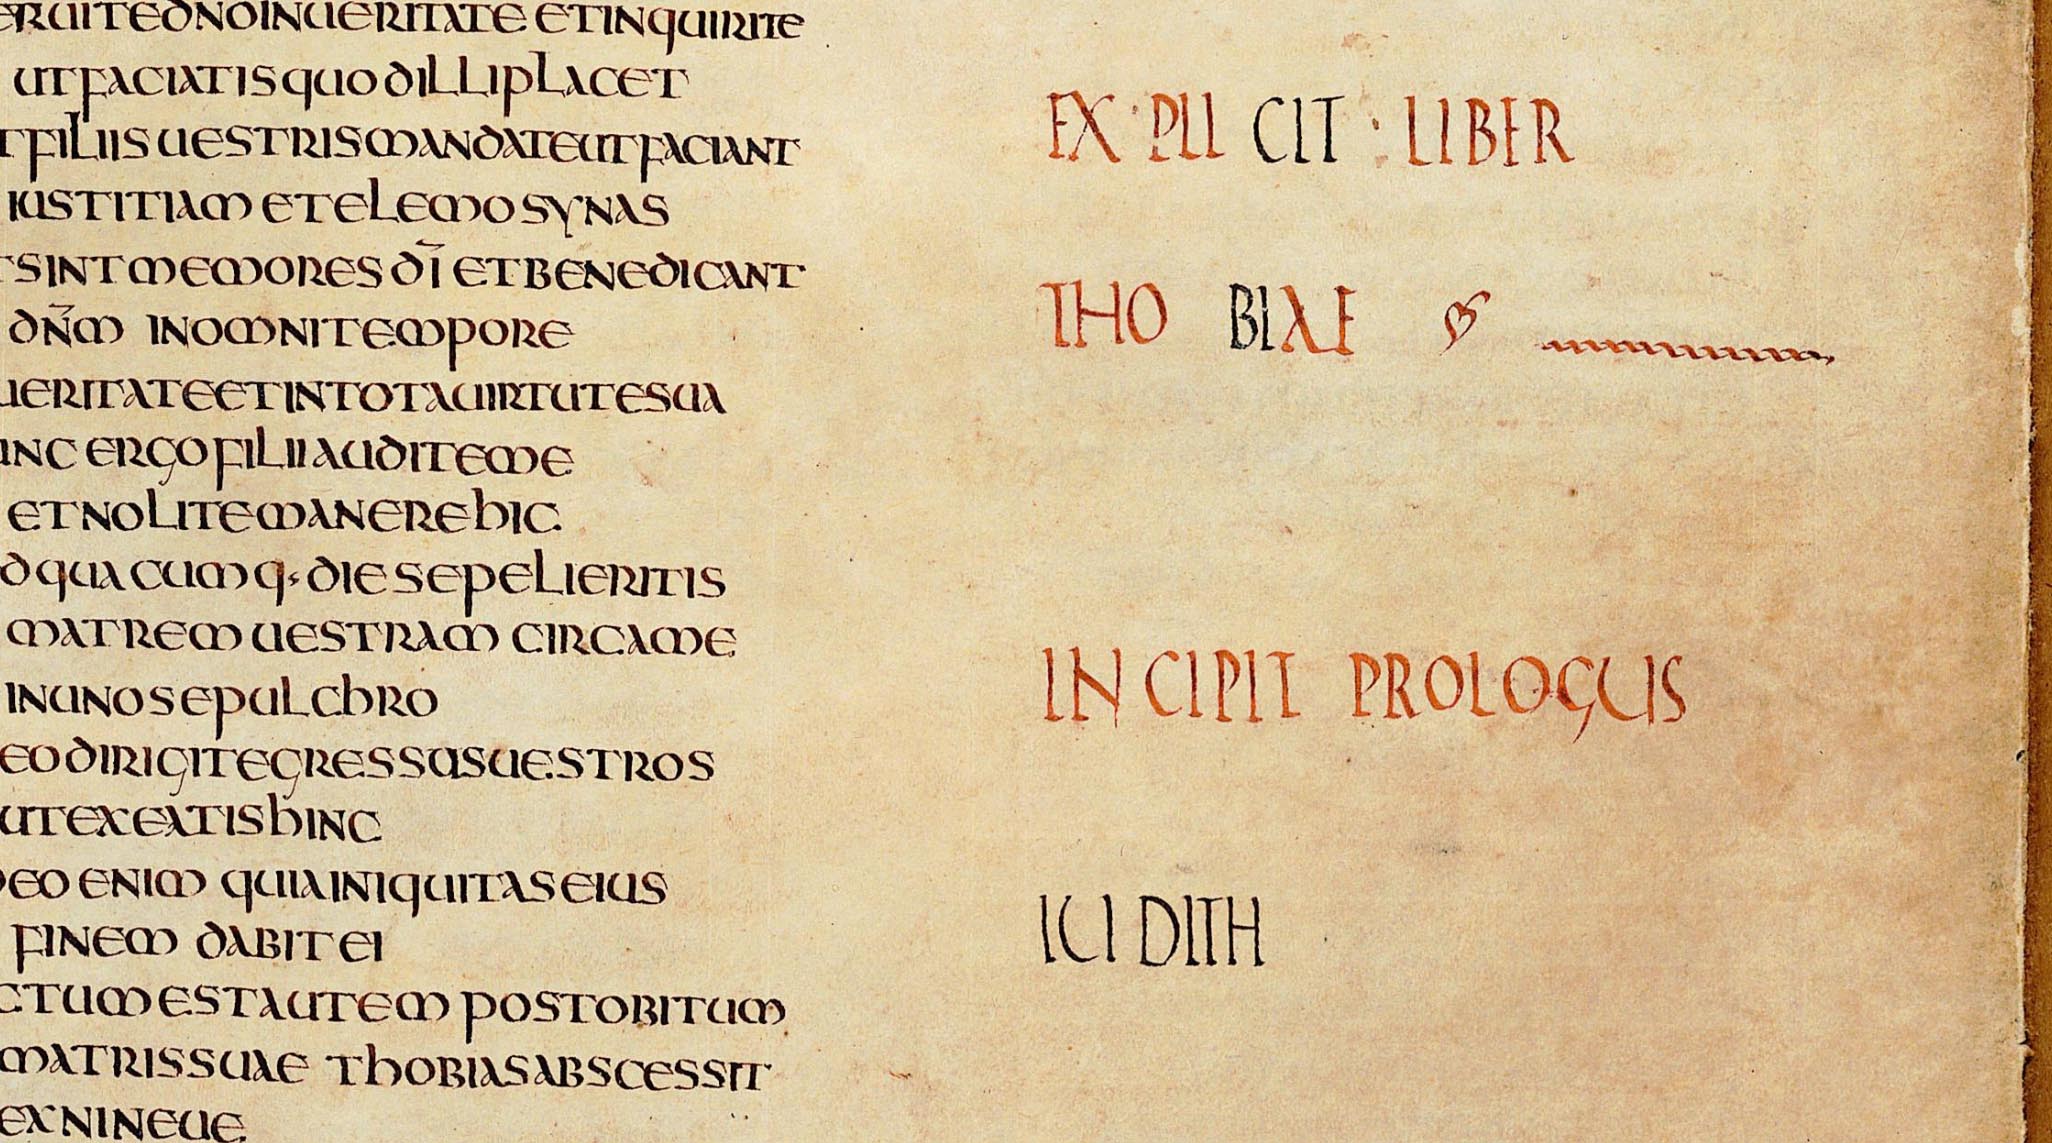 ERUITE DNO IN UERITATE ET INQUIRITE
UT FACIATIS QUOD ILLI PLACET
T FILIIS UESTRIS MANDATE UT FACIANT
IUSTITIAM ET ELEMOSYNAS
T SINT MEMORES DI̅ ET BENEDICANT
DN̅M IN OMNI TEMPORE
UERITATE ET IN TOTA UIRTUTE SUA
UNC ERGO FILII AUDITE ME
ET NOLITE MANERE HIC
D QUACUMQ· DIE SEPELIERITIS
MATREM UESTRAM CIRCA ME
IN UNO SEPULCHRO
EO DIRIGITE GRESSUS UESTROS
UT EXEATIS HINC
DEO ENIM QUIA INIQUITAS EIUS
FINEM DABIT EI
CTUM EST AUTEM POST OBITUM
MATRIS SUAE THOBIAS ABSCESSIT
EX NINEUE
EX·PLICIT·LIBER
THOBIAE
INCIPIT PROLOGUS
ICIDITH